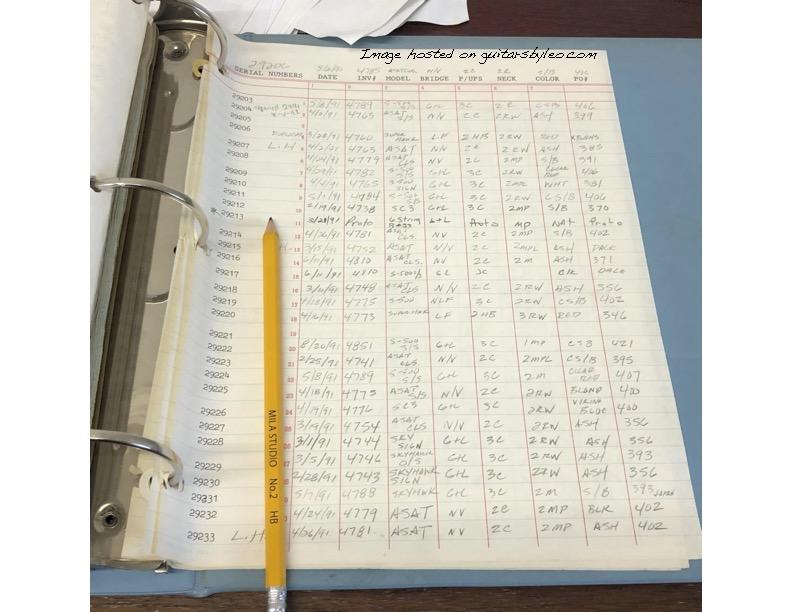 Image hosted on guitarsbyleo.com
2920C 5/6/91 4785 N/V 2C 2R S/B
SERIAL NUMBERS DATE INV# MODEL BRIDGE P/UPS NECK COLOR PO#
29203
29204 5/8/91 4789 G+L 3C 2R CSB 406
29205 4/2/91 4765 ASAT S/S N/V 2C 2RW ASH 399
29206
3/28/91 4760 LF 2HB 2RW RED
29207 L.H 4/2/91 4765 ASAT N/V 2C 2RW ASH 385
29208 4/24/91 4779 ASAT CLS NV 2C 2MP S/B 391
29209 4782 S-500 G+L 3C 2RW CLEAR RED 406
29210 4/4/91 4765 S-500 SIGN G+L 3C 2MPL WHT 381
29211 5/1/91 4784 S-500 S/S G+L 3C 2RW CS/B 406
29212 4738 SC3 G+L 3C 2MP S/B 370
* 29213 3/28/91 Proto 6 String Bass G+L Proto MP NAt Proto
29214 4/26/91 4781 ASAT CLS. NV 2C 2MP S/B 402
29215 3/15/91 4752 ASAT N/V 2C 2MPL ASH
29216 6/11/91 4810 ASAT CLS. NV 2C 2M ASH 371
29217 6/11/91 4810 GL 3C BLK
29218 4748 ASAT CLS N/V 2C 2RW ASH 356
29219 4/18/91 4775 S-500 3C 2RW CS/B 402
29220 4/16/91 4773 LF 2HB 2RW RED 346
29221
29222 8/20/91 4851 S-500 S/S G+L 3C 1MP CS/B 421
29223 2/25/91 4741 ASAT CLS. N/V 2C 2MPL CS/B 395
29224 5/8/91 4789 S-500 S/S G+L 3C 2M CLEAR RED 407
29225 4/18/91 4775 ASAT S/S N/V 2C 2RW BLOND 400
29226 4/19/91 4776 SC3 G+L 3C 2RW VIKING BLUE 400
29227 3/19/91 4754 ASAT CLS N/V 2C 2RW ASH 356
29228 3/1/91 4744 SKY SIGN G+L 3C 2RW ASH 356
29229 3/5/91 4746 SKYHAWK G+L 3C 2RW ASH 393
29230 2/28/91 4743 SKYHAWK SIGN G+L 3C 2RW ASH 356
29231 5/7/91 4788 SKYHWK G+L 3C 2M S/B 393 JAPAN
29232 4/24/91 4779 ASAT NV 2C 2MP BLK 402
29233 L.H 4/26/91 4781 ASAT NV 2C 2MP ASH 402
MILA STUDIO No.2 HB